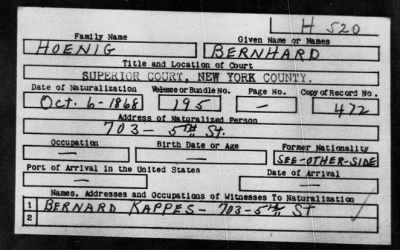 H 520
Family Name Given Name or Names
HOENIG BERNHARD
Title and Location of Court
SUPERIOR COURT, NEW YORK COUNTY.
Date of Naturalization Volume or Bundle No. Page No. Copy of Record No.
Oct. 6-1868 195 — 472
Address of Naturalized Person
703- 5TH St.
Occupation Birth Date or Age Former Nationality
— — SEE-OTHER-SIDE
Port of Arrival in the United States Date of Arrival
— —
Names, Addresses and Occupations of Witnesses To Naturalization
1 BERNARD KAPPES- 703-5TH St
2